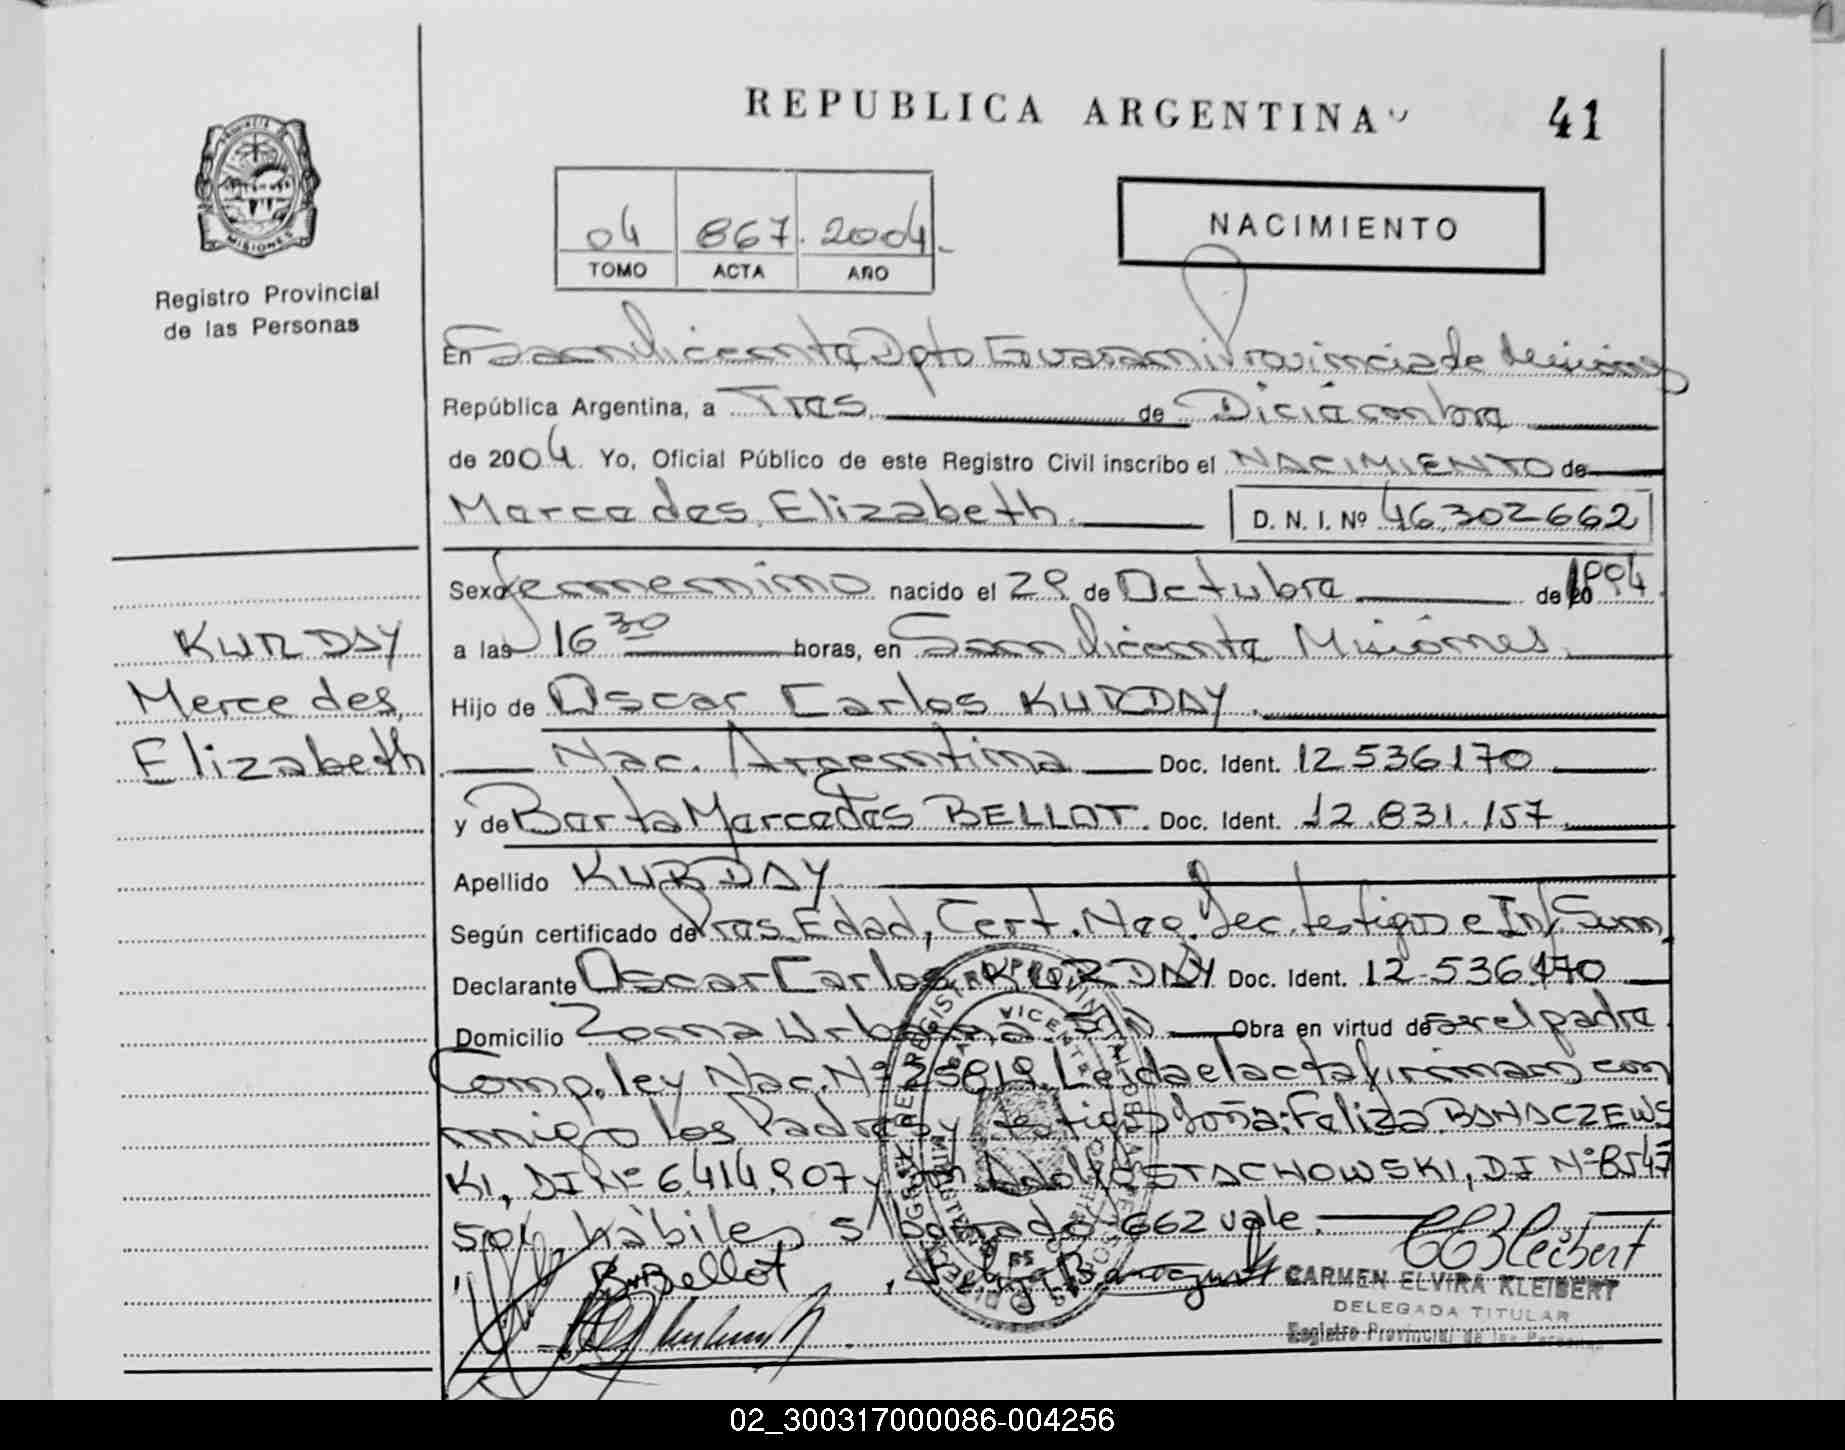 REPUBLICA ARGENTINA
41
PROVINCIA DE
MISIONES
Registro Provincial
de las Personas
04 867 2004
TOMO ACTA AÑO
NACIMIENTO
En San Vicente, Dpto Guarani Provincia de Misiones
República Argentina, a Tres de Diciembre
de 2004. Yo, Oficial Público de este Registro Civil inscribo el NACIMIENTO de
Mercedes Elizabeth D. N. I. Nº 46.302662
Sexo femenino nacido el 29 de Octubre de 1994
a las 16 30 horas, en San Vicente Misiones.
Hijo de Oscar Carlos KURDAY.
Nac. Argentina Doc. Ident. 12536170
y de Berta Mercedes BELLOT. Doc. Ident. 12.831.157
Apellido KURDAY
KURDAY
Mercedes
Elizabeth
Según certificado de Pres. Edad, Cert. Neg. Dec. testigos e Inf. Sum.
Declarante Oscar Carlos KURDAY Doc. Ident. 12.536.170
Domicilio Zona Urbana S.V. Obra en virtud de ser el padre
Comp. ley Nac. Nº 25819 Leida el acta firman con
migo los Padres y testigos Doña: Feliza BANACZEWS
KI, DI Nº 6.414.907 y Don Adolfo STACHOWSKI, DI Nº 8547
501 hàbiles s/borrado 662 vale.
B M Bellot
CARMEN ELVIRA KLEIBERT
DELEGADA TITULAR
Registro Provincial de las Personas
02_300317000086-004256